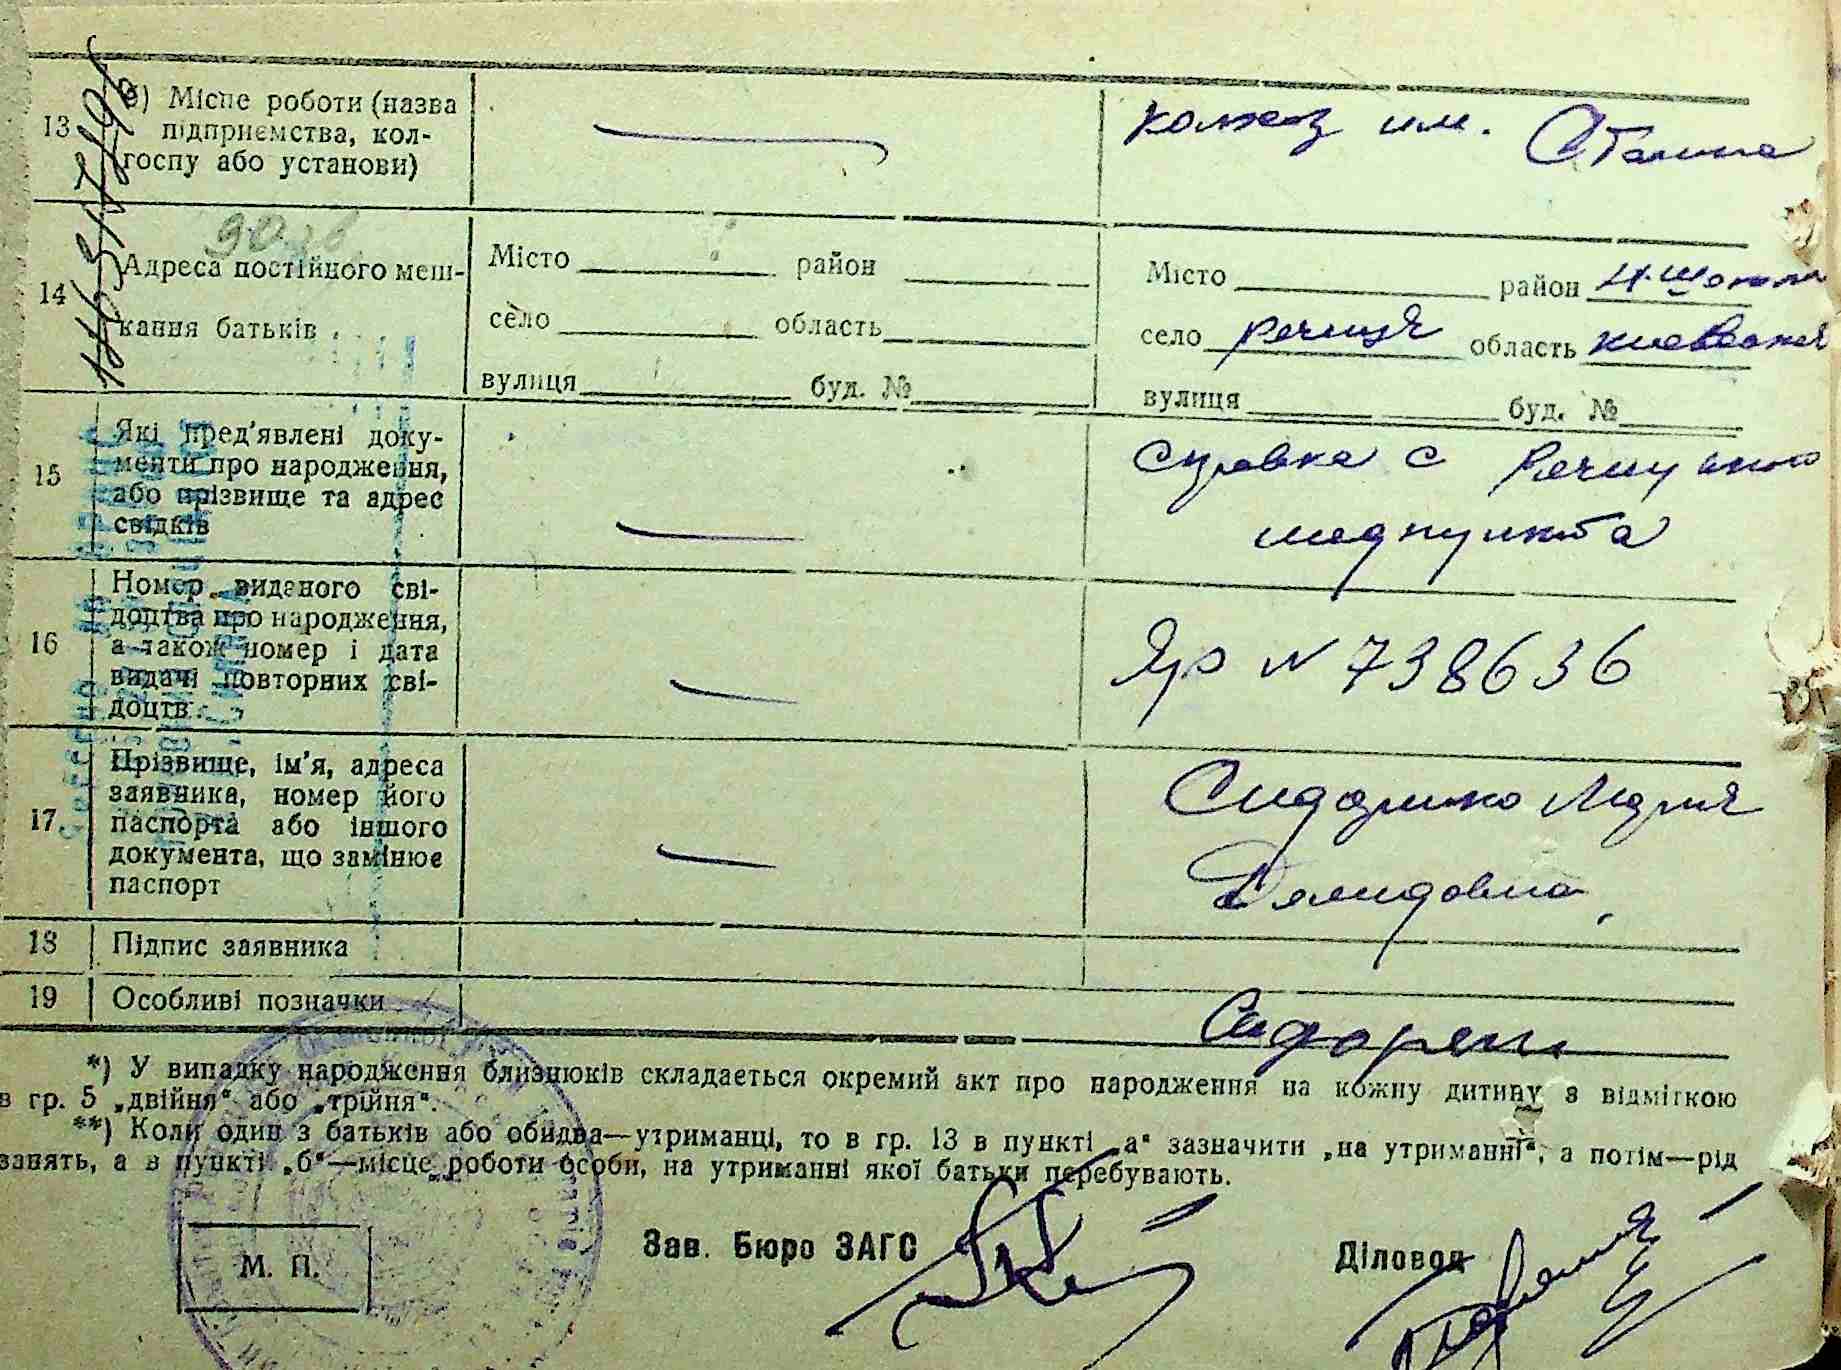 13 б) Місце роботи (назва
підприємства, кол-
госпу або установи)
колхоз им. Сталина
14 Адреса постійного меш-
кання батьків
Місто район
село область
вулиця буд. №
Місто район
село Речиця область киевская
вулиця буд. №
15 Які пред'явлені доку-
менти про народження,
або прізвище та адрес
свідків
справка с
медпункта
16 Номер виданого сві-
доцтва про народження,
а також номер і дата
видачі повторних сві-
доцтв
N 738636
17 Прізвище, ім'я, адреса
заявника, номер його
паспорта або іншого
документа, що замінює
паспорт
Сидоренко Мария
Демидовна
18 Підпис заявника
19 Особливі позначки
*) У випадку народження близнюків складається окремий акт про народження на кожну дитину з відміткою
в гр. 5 „двійня“ або „трійня“.
**) Коли один з батьків або обидва—утриманці, то в гр. 13 в пункті „а“ зазначити „на утриманні“, а потім—рід
занять, а в пункті „б“—місце роботи особи, на утриманні якої батьки перебувають.
Зав. Бюро ЗАГС
Діловод
М. П.